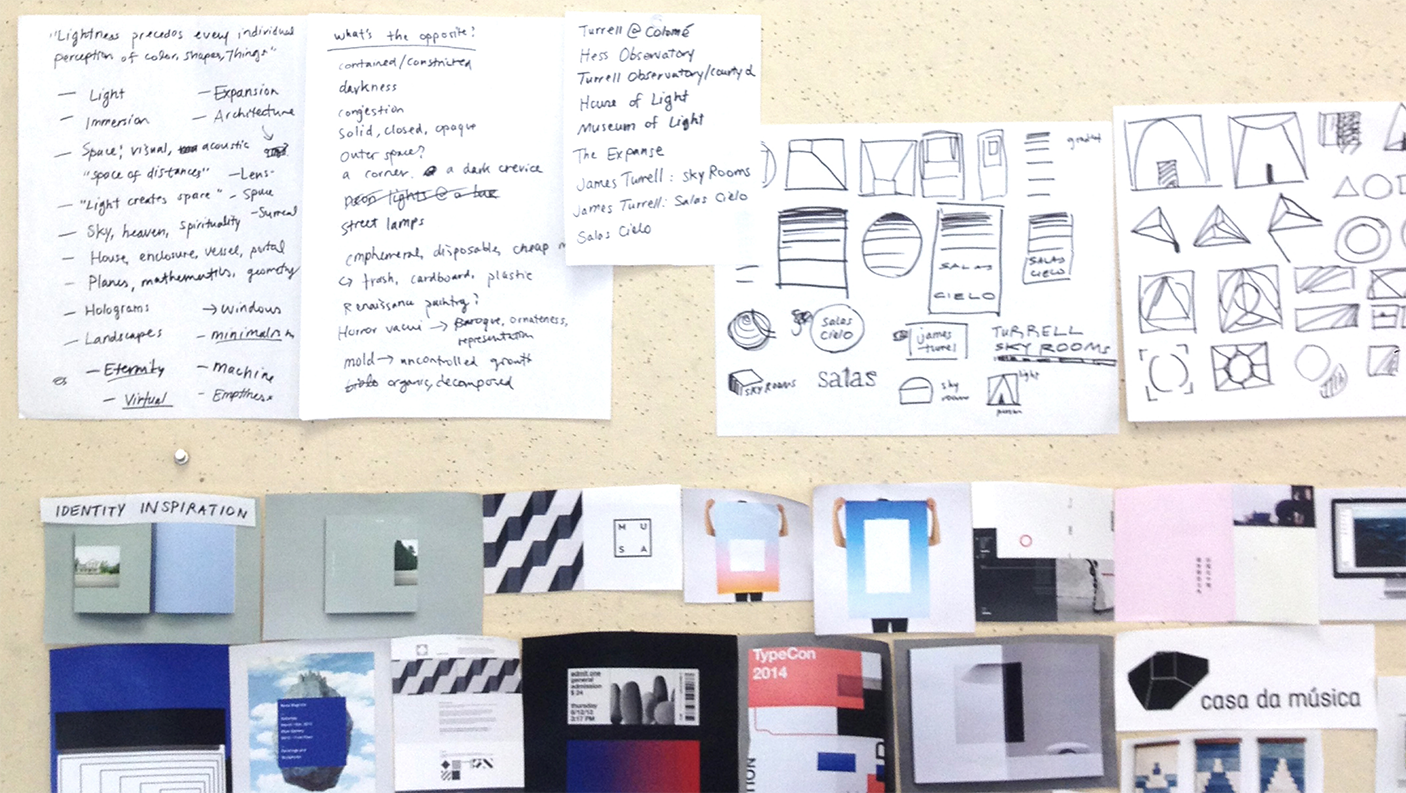 "Lightness precedes every individual
perception of color, shapes, things"
— Light
— Immersion
— Space: visual, acoustic
"space of distances"
— "Light creates space"
— Sky, heaven, spirituality
— House, enclosure, vessel, portal
— Planes, mathematics, geometry
— Holograms
— Landscapes
— Eternity
— Virtual
— Expansion
— Architecture
— Lens
— Space
— Surreal
→ windows
— minimalism
— Machine
— Emptiness
what's the opposite?
contained/constricted
darkness
congestion
solid, closed, opaque
outer space?
a corner. a dark crevice
neon lights @ a bar
street lamps
emphemeral, disposable, cheap
↳ trash, cardboard, plastic
Renaissance painting?
Horror vacui → Baroque, ornateness,
representation
mold → uncontrolled growth
organic, decomposed
Turrell @ Colomé
Hess Observatory
Turrell Observatory/
House of Light
Museum of Light
The Expanse
James Turrell: Sky Rooms
James Turrell: Salas Cielo
Salas Cielo
gradient
SALAS
CIELO
SALAS
CIELO
Salas
Cielo
james
turrel
TURRELL
SKY ROOMS
SKY ROOMS
salas
sky
room
light
person
IDENTITY INSPIRATION
M U
S A
admit one
general
admission
$ 24
thursday
6/12/12
3:17 PM
TypeCon
2014
casa da música